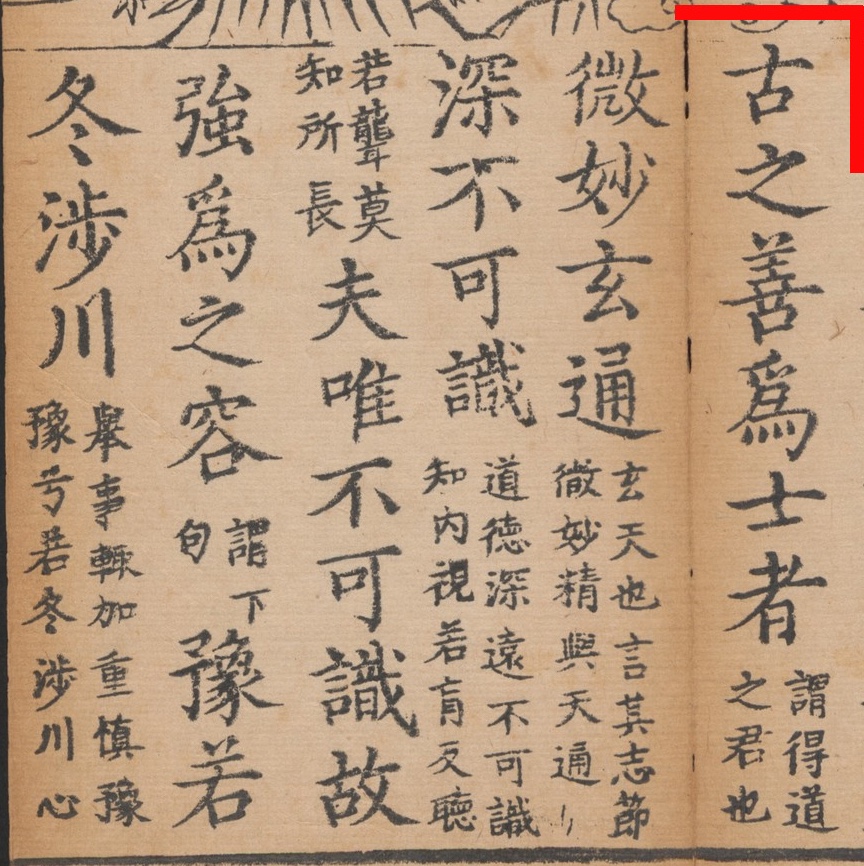 古之善爲士者謂得道之君也
微妙玄通玄天也言其志節微妙精與天通〻
深不可識道德深遠不可識知内視若盲反聽
若聾莫知所長夫唯不可識故
強爲之容謂下句豫若
冬涉川舉事輙加重慎豫豫兮若冬涉川心